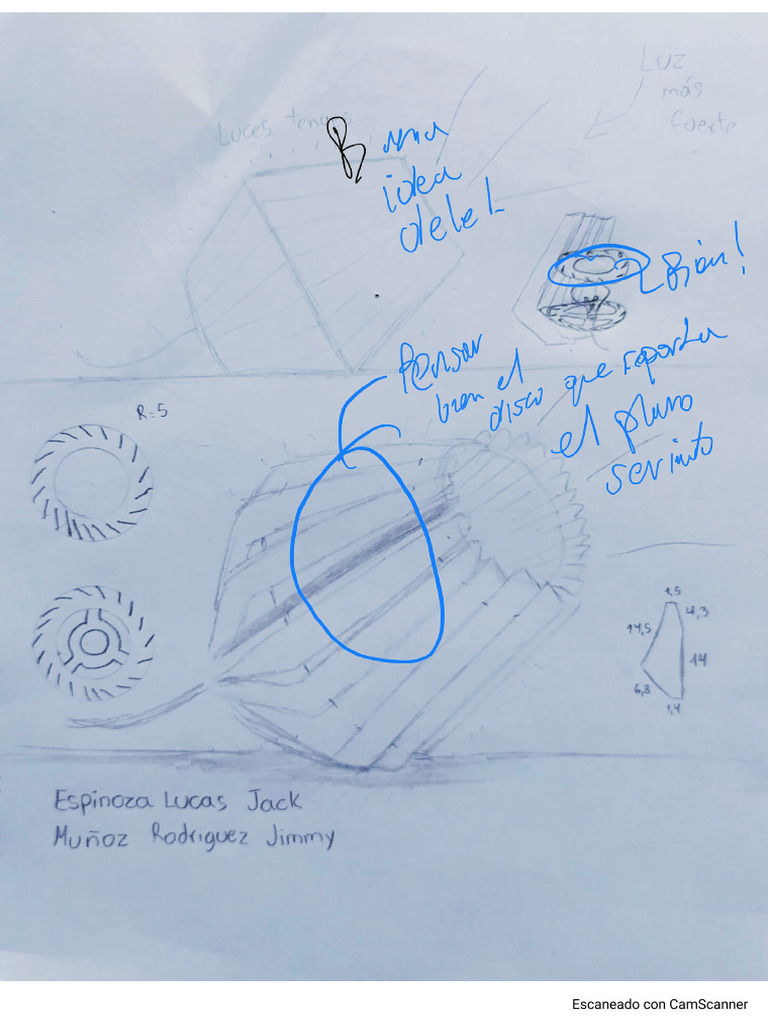 Luz
más
fuerte
Luces tenues
Buena
idea
dele!
Bien!
Pensar
bien el
disco que soporta
el plano
seriado
R=5
1,5
4,3
14,5
14
6,8
1,4
Espinoza Lucas Jack
Muñoz Rodriguez Jimmy
Escaneado con CamScanner